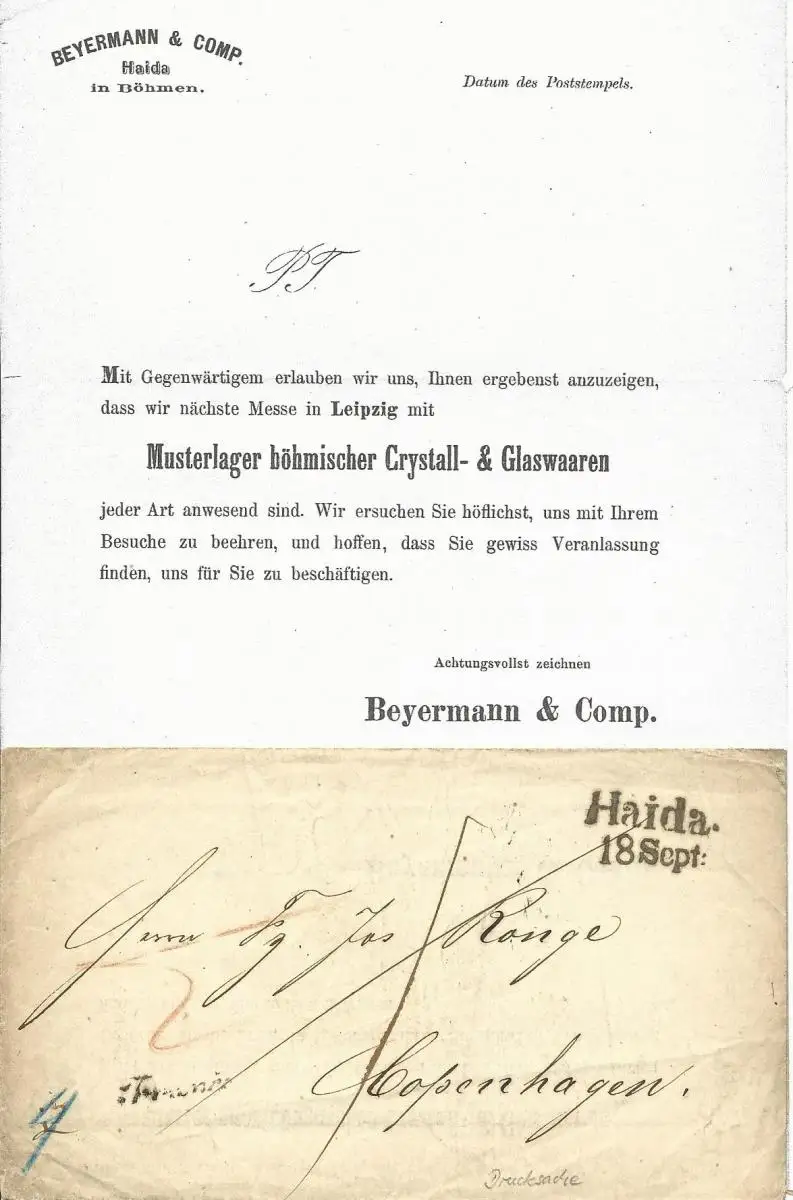 BEYERMANN & COMP.
Haida
in Böhmen.
Datum des Poststempels.
PT
Mit Gegenwärtigem erlauben wir uns, Ihnen ergebenst anzuzeigen,
dass wir nächste Messe in Leipzig mit
Musterlager böhmischer Crystall- & Glaswaaren
jeder Art anwesend sind. Wir ersuchen Sie höflichst, uns mit Ihrem
Besuche zu beehren, und hoffen, dass Sie gewiss Veranlassung
finden, uns für Sie zu beschäftigen.
Achtungsvollst zeichnen
Beyermann & Comp.
Haida.
18 Sept:
Herrn Fg. Jos Ronge
Copenhagen.
Drucksache